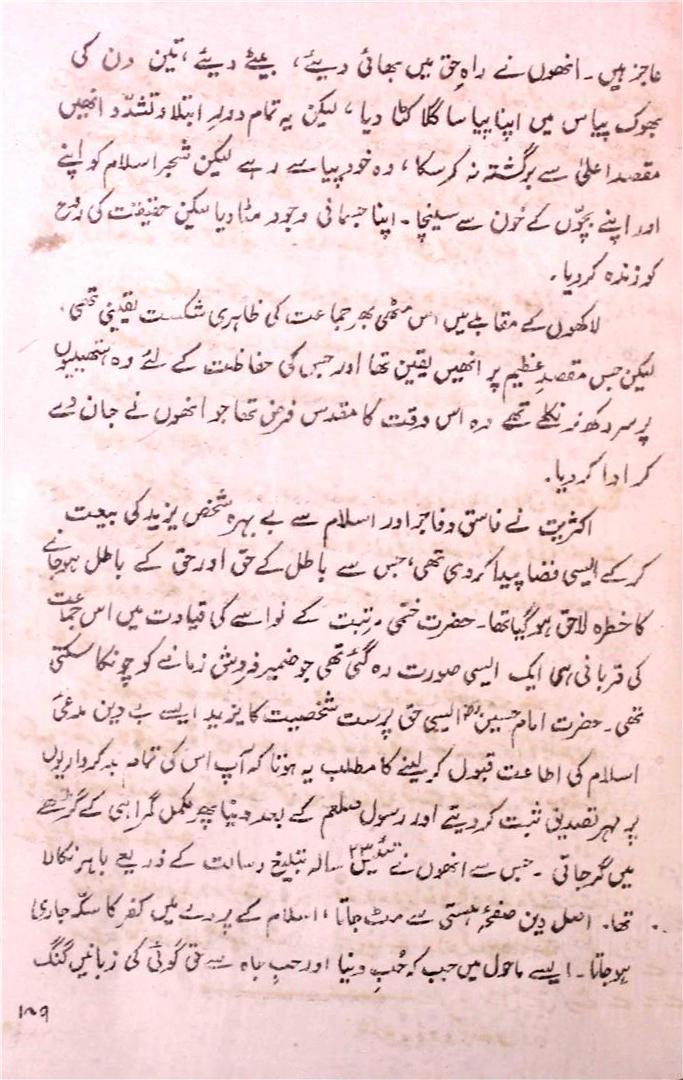 عاجز ہیں۔ انھوں نے راہِ حق میں بھائی دیئے، بیٹے دیئے، تین دن کی
بھوک پیاس میں اپنا پیاسا گلا کٹا دیا، لیکن یہ تمام دورِ ابتلا و تشدّد انھیں
مقصدِ اعلیٰ سے برگشتہ نہ کر سکا، وہ خود پیاسے رہے لیکن شجر اسلام کو اپنے
اور اپنے بچّوں کے خُون سے سینچا۔ اپنا جسمانی وجود مٹا دیا لیکن حقیقت کی روح
کو زندہ کر دیا۔
لاکھوں کے مقابلے میں اس مٹھی بھر جماعت کی ظاہری شکست یقینی تھی۔
لیکن جس مقصدِ عظیم پر انھیں یقین تھا اور جس کی حفاظت کے لئے وہ ہتھیلیوں
پر سر رکھ کر نکلے تھے وہ اس وقت کا مقدس فرض تھا جو انھوں نے جان دے
کر ادا کر دیا۔
اکثریت نے فاسق و فاجر اور اسلام سے بے بہرہ شخص یزید کی بیعت
کر کے ایسی فضا پیدا کر دی تھی، جس سے باطل کے حق اور حق کے باطل ہو جانے
کا خطرہ لاحق ہو گیا تھا۔ حضرت ختمی مرتبت کے نواسے کی قیادت میں اس جماعت
کی قربانی ہی ایک ایسی صورت رہ گئی تھی جو ضمیر فروش زمانے کو چونکا سکتی
تھی۔ حضرت امام حسینؑ ایسی حق پرست شخصیت کا یزید ایسے بے دین مدعیِ
اسلام کی اطاعت قبول کر لینے کا مطلب یہ ہوتا کہ آپ اس کی تمام بد کرداریوں
پر مہر تصدیق ثبت کر دیتے اور رسول صلعم کے بعد دنیا پھر مکمل گمراہی کے گڑھے
میں گر جاتی۔ جس سے انھوں نے تئیس ۲۳ سالہ تبلیغ رسالت کے ذریعے باہر نکالا
تھا۔ اصل دین صفحۂ ہستی سے مٹ جاتا، اسلام کے پردے میں کفر کا سکّہ جاری
ہو جاتا۔ ایسے ماحول میں جب کہ حُبِ دنیا اور حبِ جاہ سے حق گوئی کی زبانیں گنگ
۱۰۹